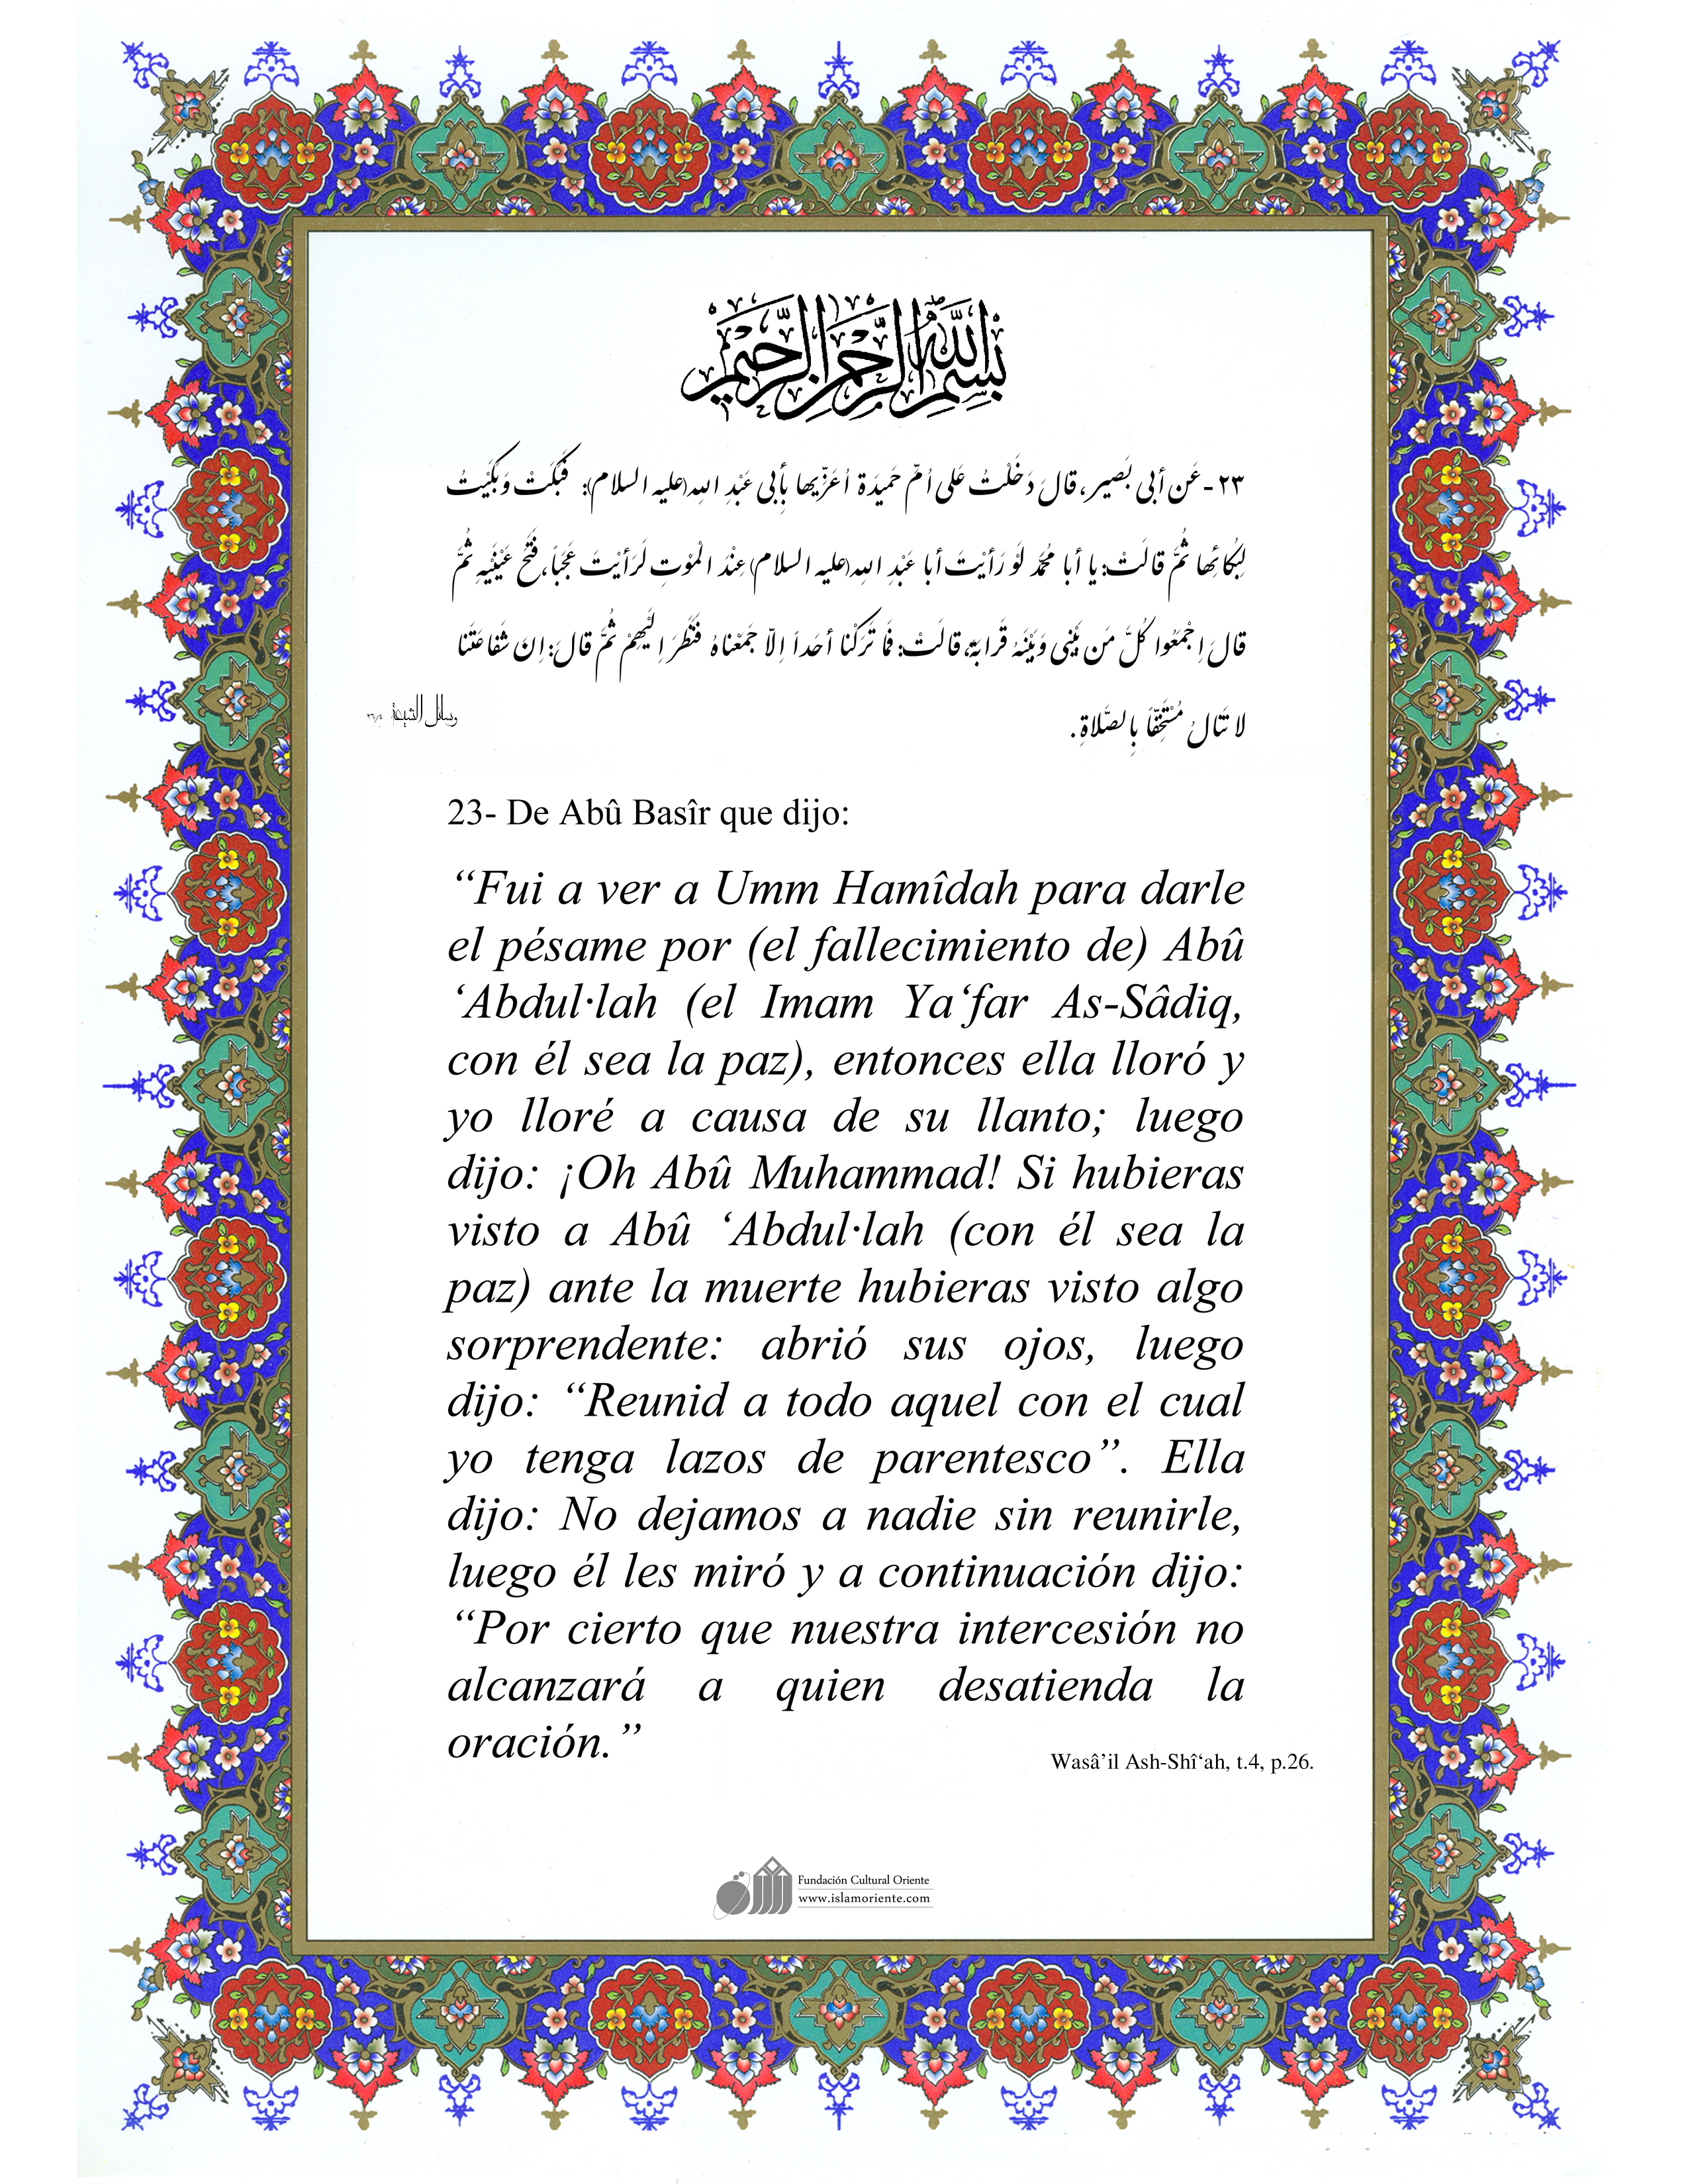 بِسْمِ اللهِ الرَّحْمنِ الرَّحِيمِ
٢٣- عَن أبى بَصير، قالَ دَخَلْتُ عَلى اُمّ حَميدَة اُعَزّيها بِأبى عَبْدِ اللهِ(عليه السلام): فَبَكَتْ وَبَكَيْتُ
لِبُكائِها ثُمَّ قالَتْ: يا أبا مُحَمَّد لَوْ رَأيْتَ أبا عَبْدِ اللهِ(عليه السلام) عِنْدَ الْمَوْتِ لَرَأيْتَ عَجَباً، فَتَحَ عَيْنَيهِ ثُمَّ
قالَ اِجْمَعُوا كُلَّ مَن بَيْنى وَبَيْنَهُ قَرابَة، قالَتْ: فَما تَرَكْنا أحَداً اِلاّ جَمَعْناهُ فَنَظَرَ اِلَيْهِمْ ثُمَّ قالَ: اِنَ شَفاعَتَنا
لا تَنالُ مُسْتَخِفّاً بِالصَّلاةِ.
وسائل الشيعة ٢٦/٤
23- De Abû Basîr que dijo:
“Fui a ver a Umm Hamîdah para darle
el pésame por (el fallecimiento de) Abû
‘Abdul·lah (el Imam Ya‘far As-Sâdiq,
con él sea la paz), entonces ella lloró y
yo lloré a causa de su llanto; luego
dijo: ¡Oh Abû Muhammad! Si hubieras
visto a Abû ‘Abdul·lah (con él sea la
paz) ante la muerte hubieras visto algo
sorprendente: abrió sus ojos, luego
dijo: “Reunid a todo aquel con el cual
yo tenga lazos de parentesco”. Ella
dijo: No dejamos a nadie sin reunirle,
luego él les miró y a continuación dijo:
“Por cierto que nuestra intercesión no
alcanzará a quien desatienda la
oración.”
Wasâ’il Ash-Shî‘ah, t.4, p.26.
Fundación Cultural Oriente
www.islamoriente.com